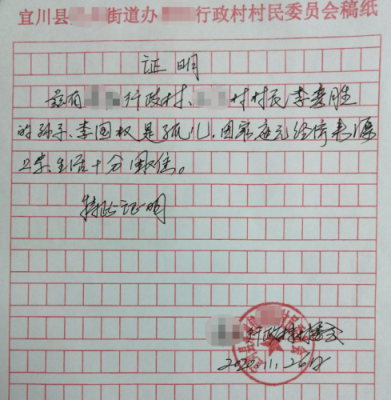 宜川县 街道办 行政村村民委员会稿纸
证明
兹有 行政村、 村村民李娄胜
的孙子、李国权是孤儿,因家庭无经济来源
上学生活十分困难。
特此证明
行政村村委会
2020.11.26日